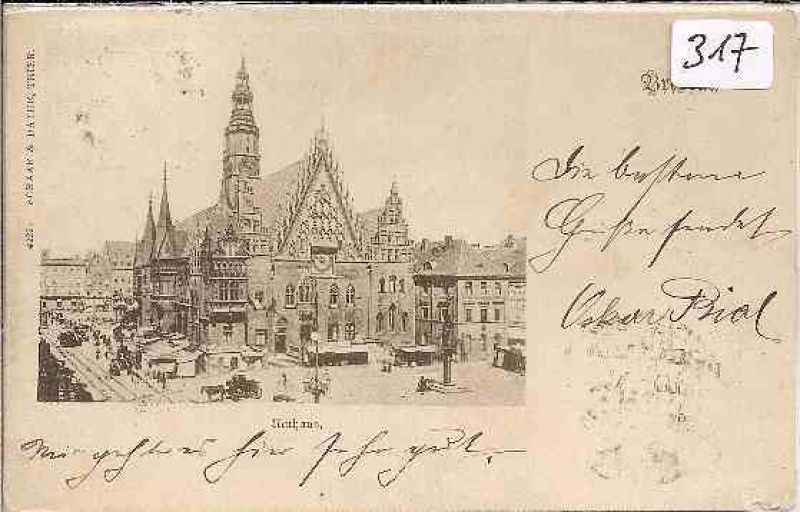 317
Breslau
SCHAAR & DATHE, TRIER.
Die besten
Grüße sendet
Oskar Bial
Rathaus.
Mir geht es hier sehr gut.